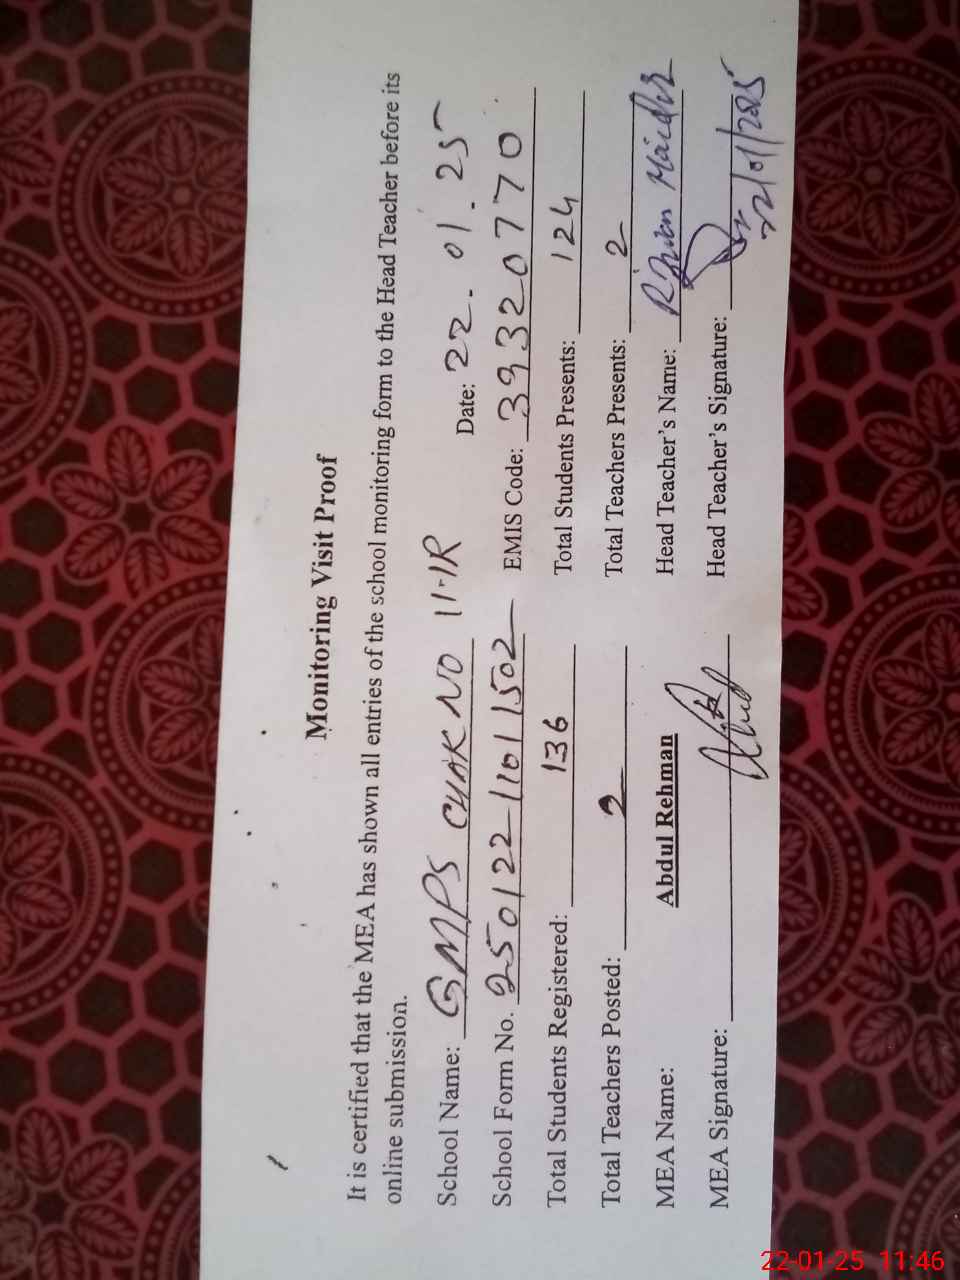 Monitoring Visit Proof
It is certified that the MEA has shown all entries of the school monitoring form to the Head Teacher before its
online submission.
School Name: GMPS CHAK NO 11-1R Date: 22.01.25
School Form No. 250122-11011502 EMIS Code: 39320770
Total Students Registered: 136 Total Students Presents: 124
Total Teachers Posted: 2 Total Teachers Presents: 2
MEA Name: Abdul Rehman Head Teacher's Name:
MEA Signature: Head Teacher's Signature:
22/01/2025
22-01-25 11:46